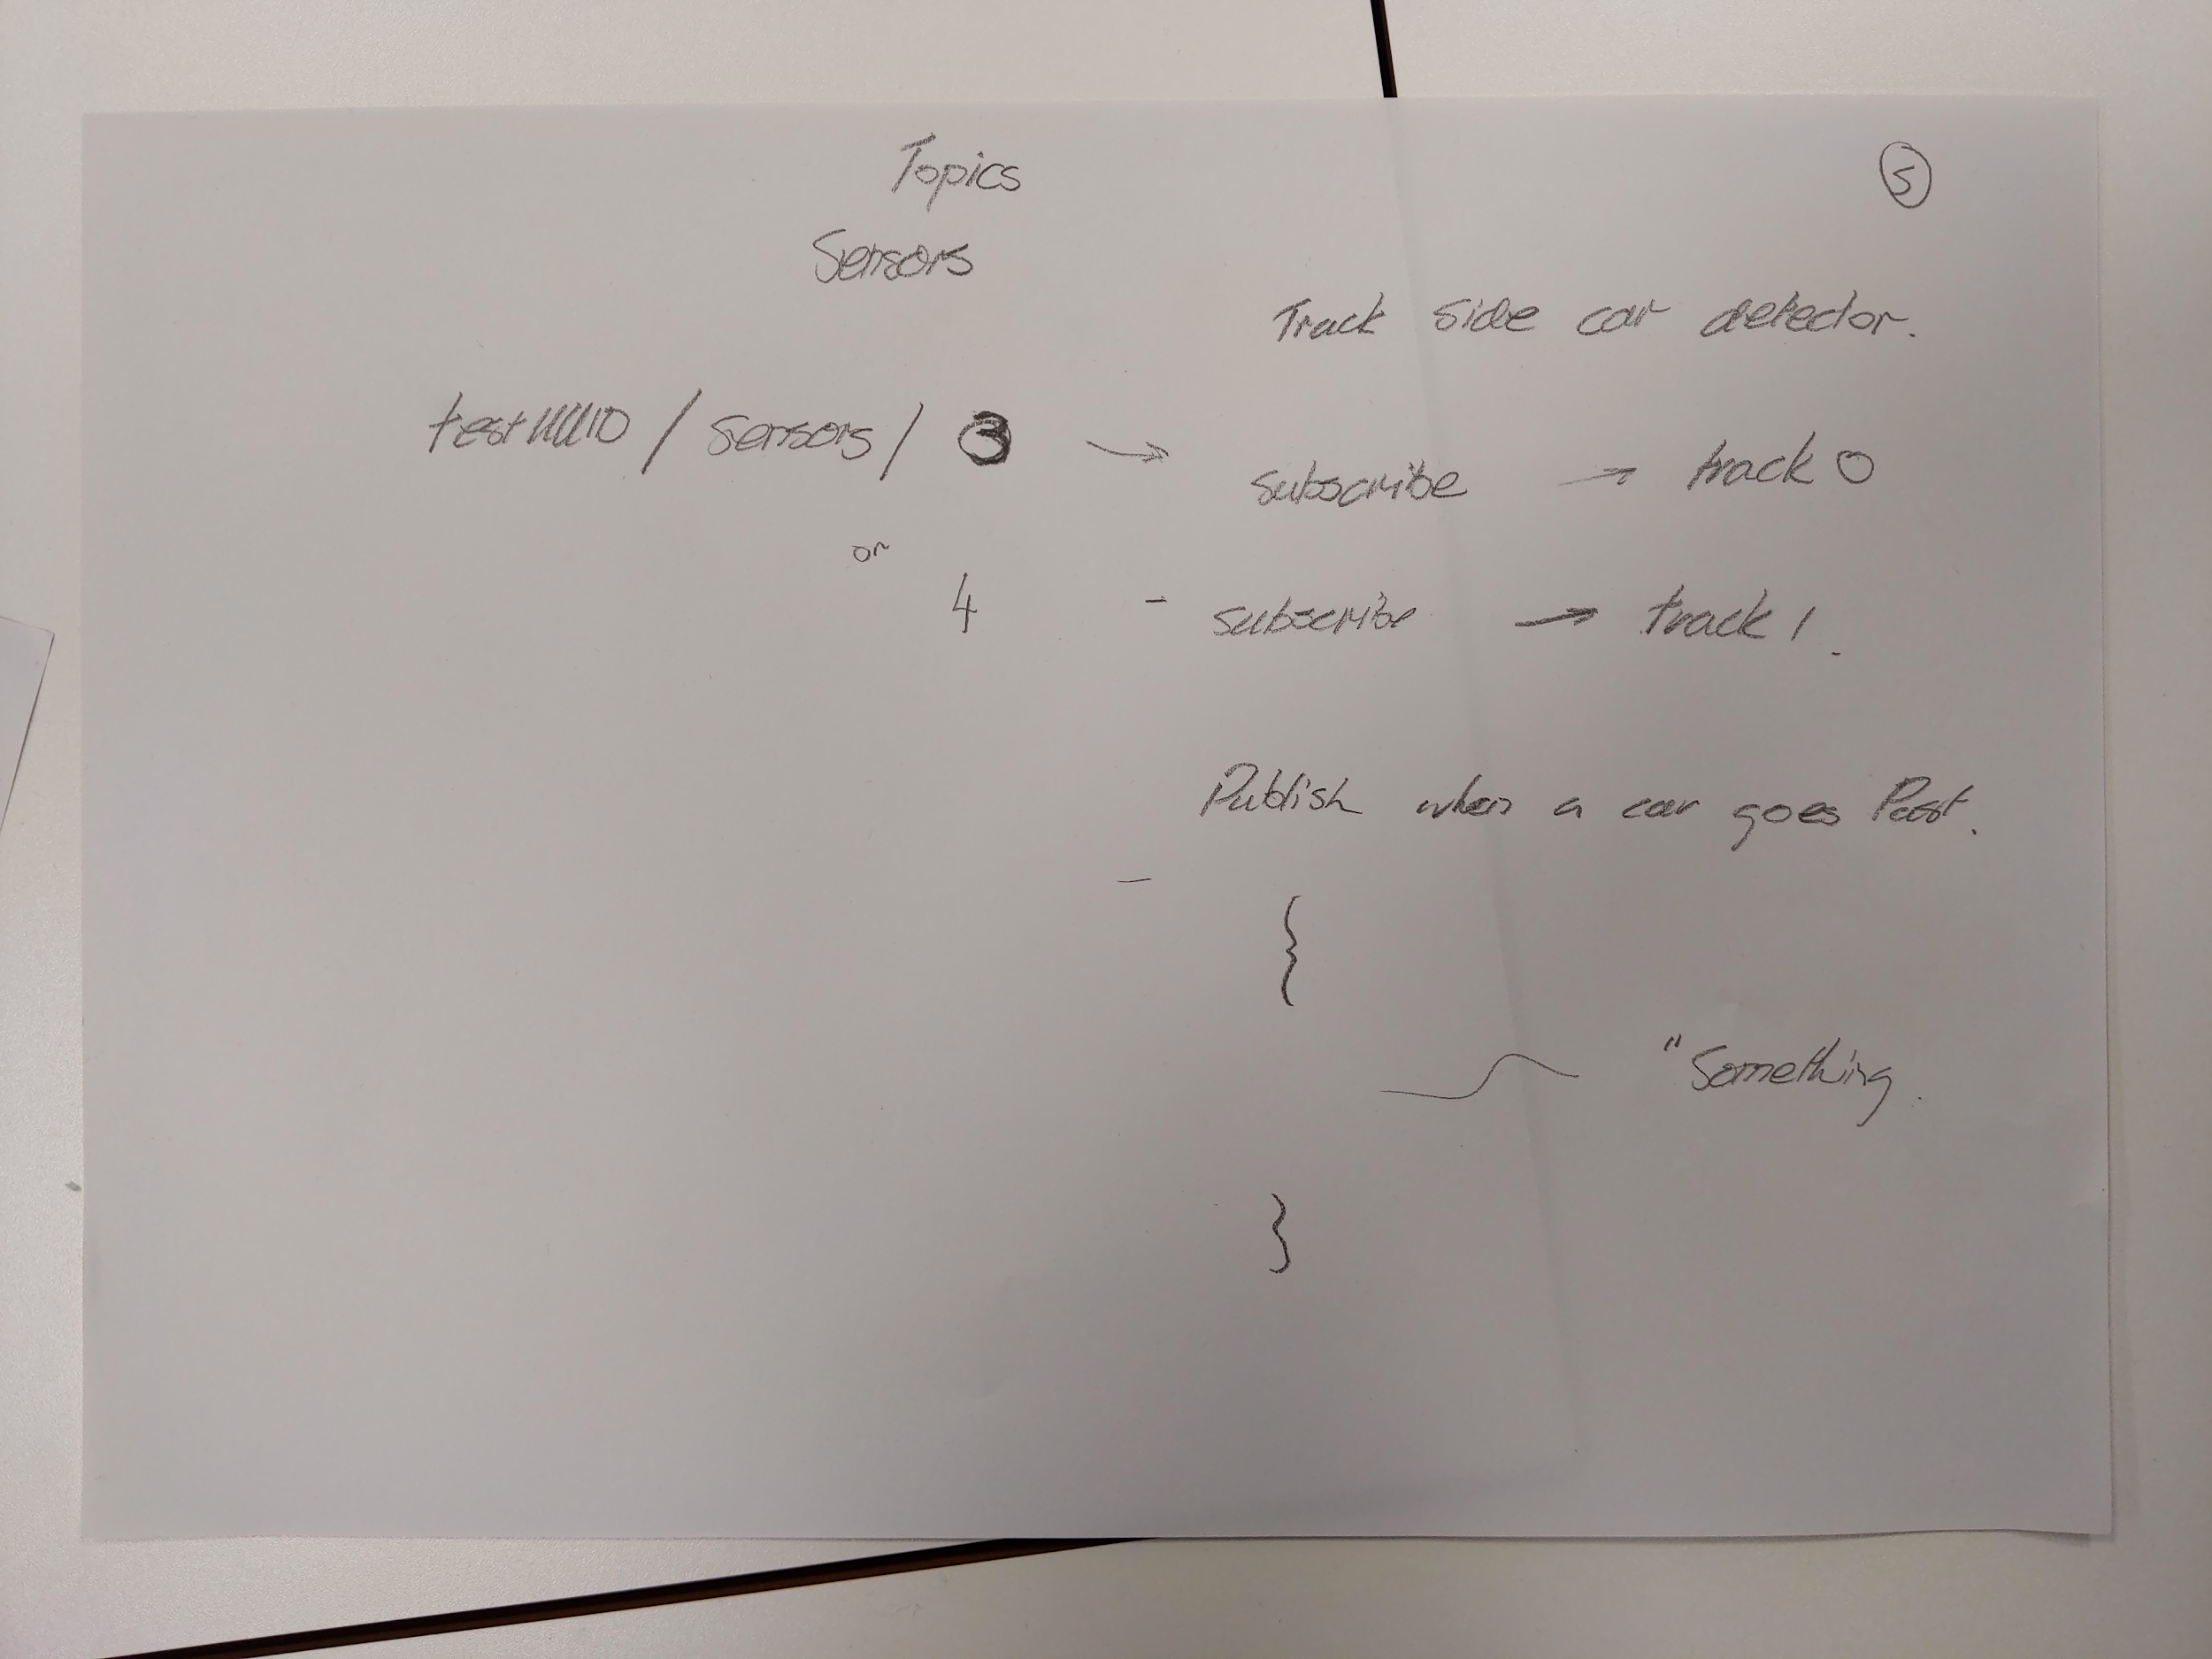 Topics
5
Sensors
Track side car detector.
testUUID / sensors / 3 → subscribe → track 0
or
4 - subscribe → track 1.
Publish when a car goes Past.
{
"Something.
}